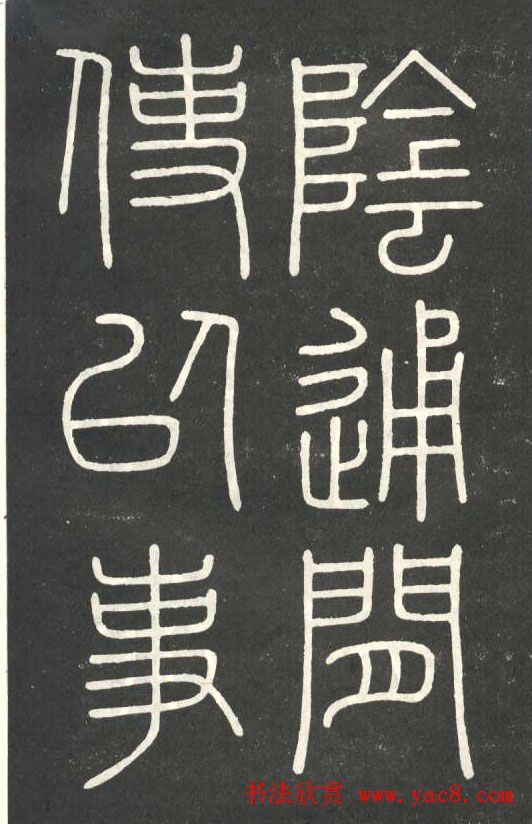 陰通閒
使以事
书法欣赏 www.yac8.com